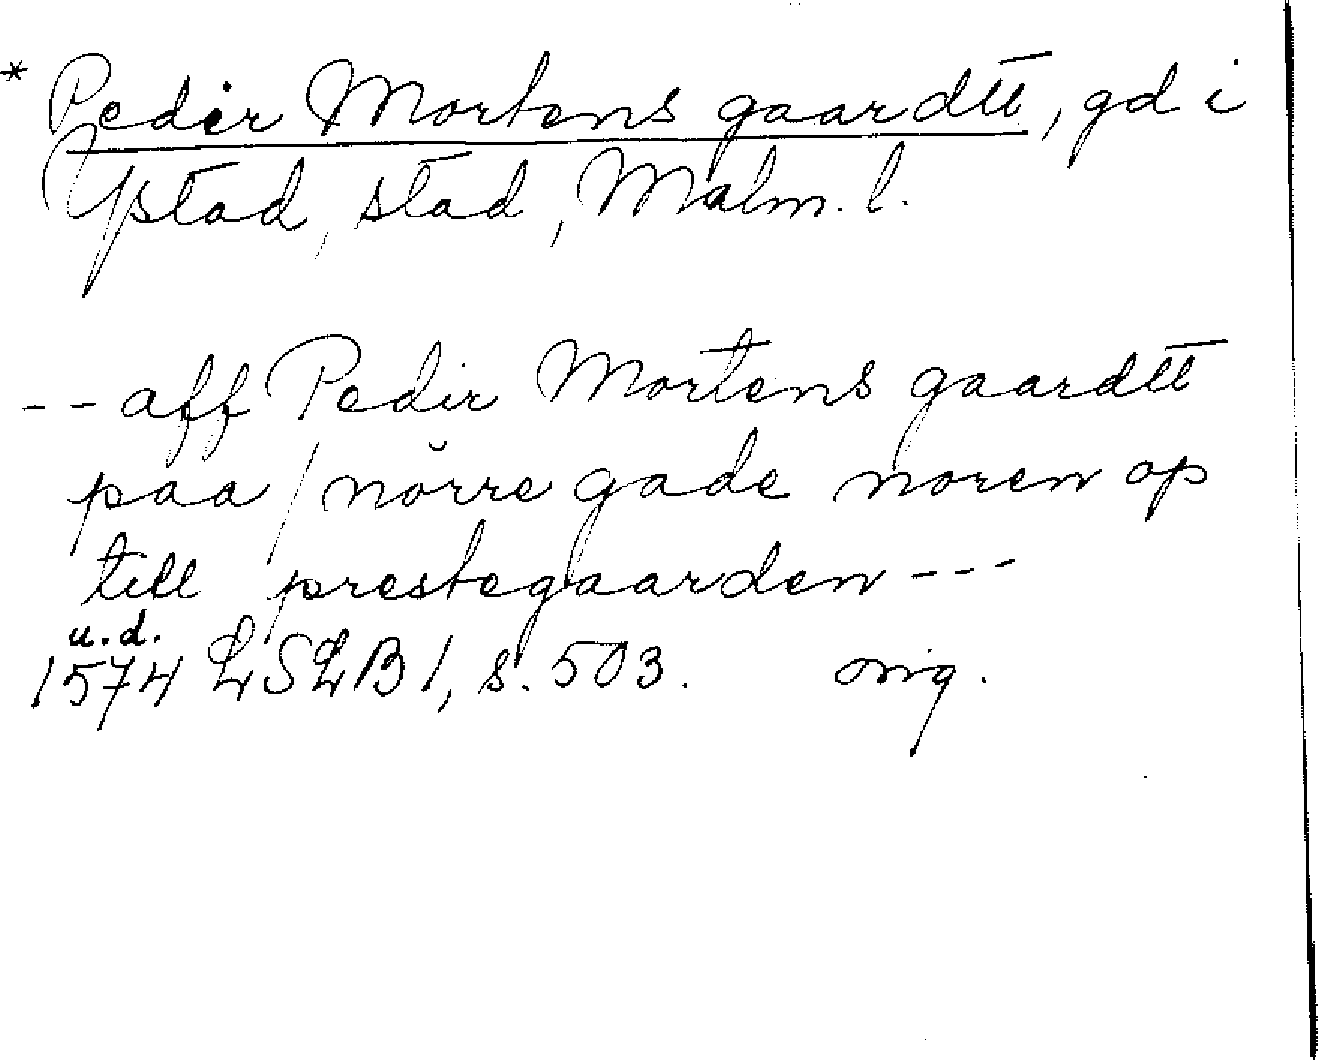 * Pedir Mortens gaardtt, gd i
Ystad, stad, Malm. l.
-- aff Pedir Mortens gaardtt
paa / nŏrre gade noren op
till prestegaarden ---
u.d.
1574 LSLB 1, s. 503. orig.